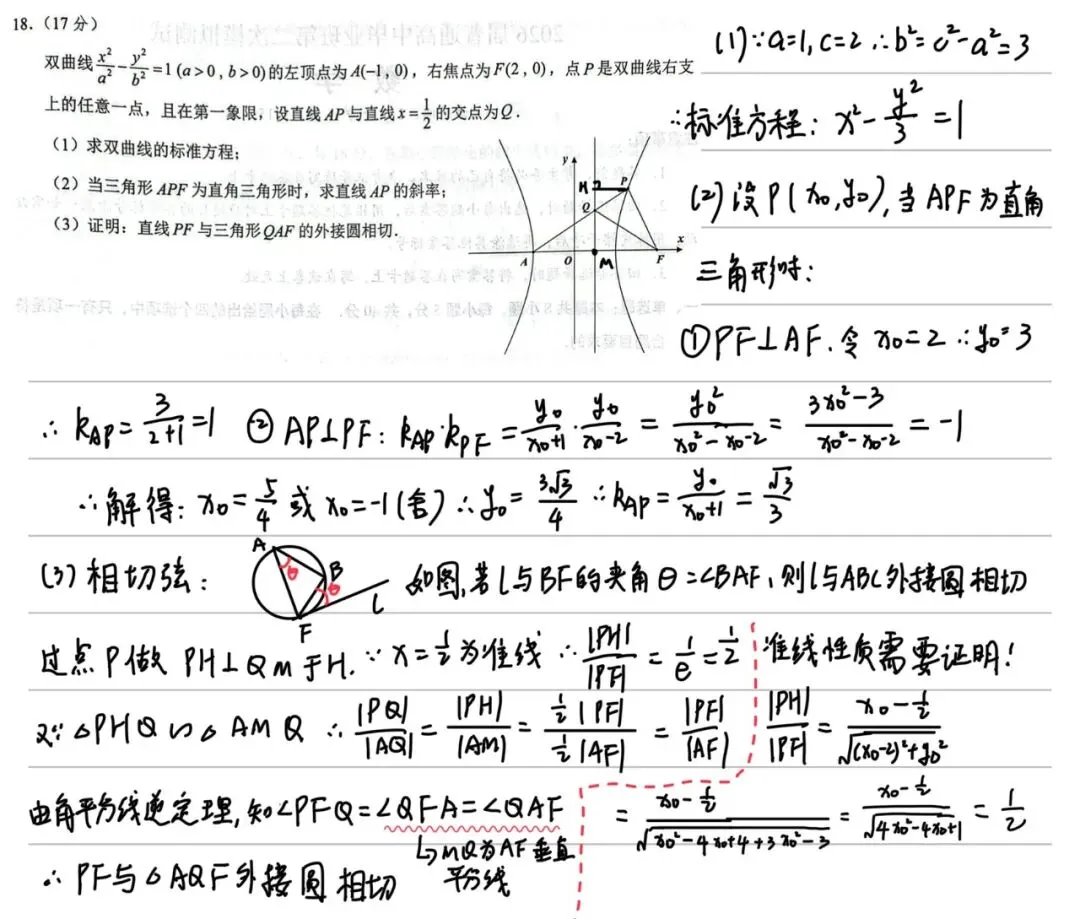 18.（17分）
双曲线x²/a²-y²/b²=1(a>0,b>0)的左顶点为A(-1,0)，右焦点为F(2,0)，点P是双曲线右支
上的任意一点，且在第一象限，设直线AP与直线x=1/2的交点为Q.
（1）求双曲线的标准方程；
（2）当三角形APF为直角三角形时，求直线AP的斜率；
（3）证明：直线PF与三角形QAF的外接圆相切.
y
H P
Q
A O M F x
(1)∵a=1,c=2 ∴b²=c²-a²=3
∴标准方程：x²-y²/3=1
(2)设P(x₀,y₀),当APF为直角
三角形时：
①PF⊥AF.令x₀=2∴y₀=3
∴k_AP=3/(2+1)=1 ②AP⊥PF：k_AP·k_PF=y₀/(x₀+1)·y₀/(x₀-2)=y₀²/(x₀²-x₀-2)=(3x₀²-3)/(x₀²-x₀-2)=-1
∴解得：x₀=5/4或x₀=-1(舍)∴y₀=3√3/4 ∴k_AP=y₀/(x₀+1)=√3/3
(3)相切弦：
A
θ B θ
F l
如图,若l与BF的夹角θ=∠BAF,则l与ABC外接圆相切
过点P做PH⊥QM于H.∵x=1/2为准线 ∴|PH|/|PF|=1/e=1/2
准线性质需要证明！
又∵△PHQ∽△AMQ ∴|PQ|/|AQ|=|PH|/|AM|=½|PF|/½|AF|=|PF|/|AF|
|PH|/|PF|=(x₀-1/2)/√((x₀-2)²+y₀²)
=(x₀-1/2)/√(x₀²-4x₀+4+3x₀²-3)=(x₀-1/2)/√(4x₀²-4x₀+1)=1/2
由角平分线逆定理,知∠PFQ=∠QFA=∠QAF
↳MQ为AF垂直
平分线
∴PF与△AQF外接圆相切